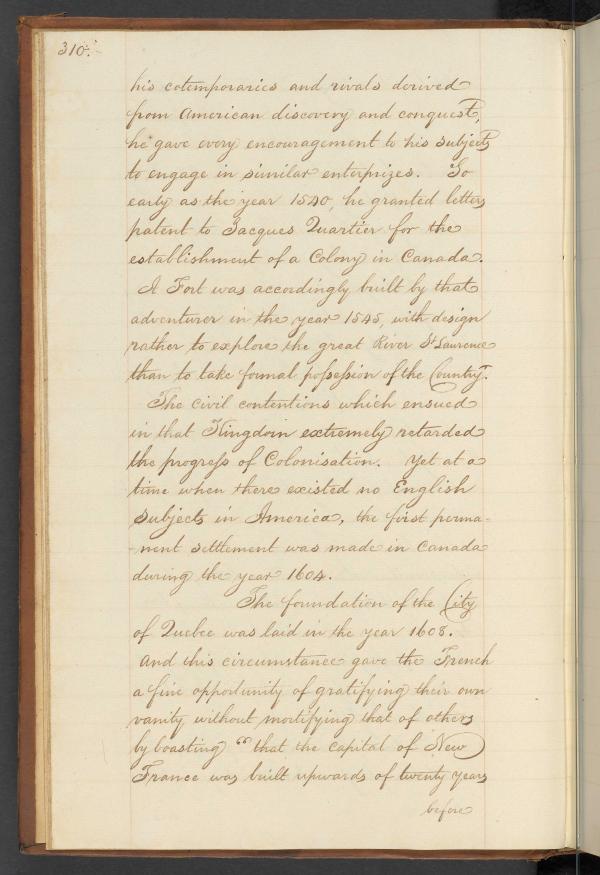 310.
his cotemporaries and rivals derived
from American discovery and conquest,
he gave every encouragement to his subjects
to engage in similar enterprizes. So
early as the year 1540, he granted letters
patent to Jacques Quartier for the
establishment of a Colony in Canada.
A Fort was accordingly built by that
adventurer in the year 1545, with design
rather to explore the great River St Laurence
than to take formal possession of the Country.
The civil contentions which ensued
in that Kingdom extremely retarded
the progress of Colonisation. Yet at a
time when there existed no English
subjects in America, the first perma-
-nent settlement was made in Canada
during the year 1604.
The foundation of the City
of Quebec was laid in the year 1608.
And this circumstance gave the French
a fine opportunity of gratifying their own
vanity without mortifying that of others
by boasting “that the capital of New
France was built upwards of twenty years
before